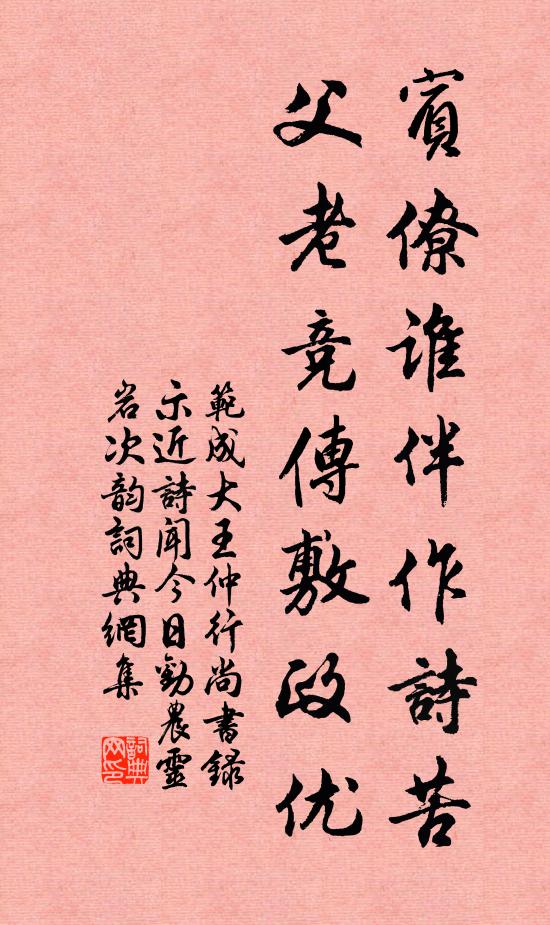 賓僚誰伴作詩苦
父老竞傳敷政优
範成大王仲行尚書錄
示近詩聞今日勸農靈
岩次韵詞典網集
詞典网印